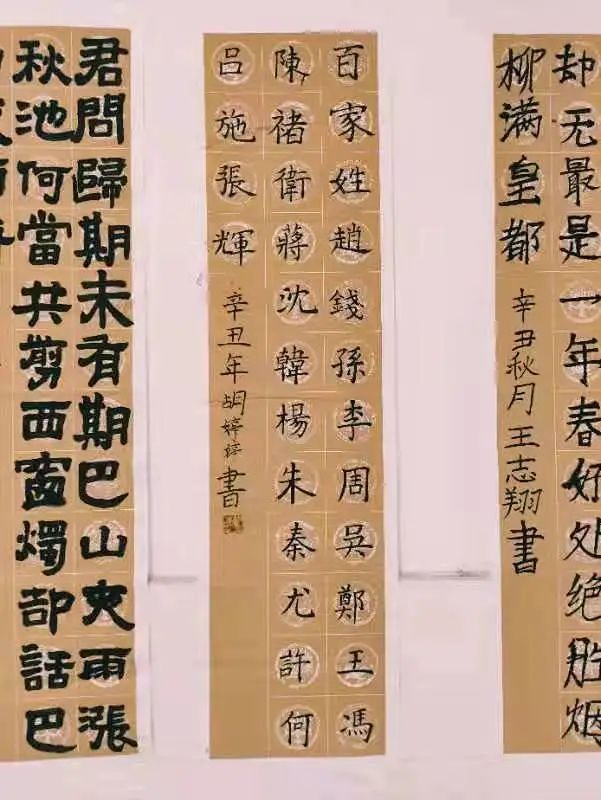 却无最是一年春好处绝胜烟
柳满皇都
辛丑秋月王志翔書
百家姓趙錢孫李周吳鄭王馮
陳褚衛蔣沈韓楊朱秦尤許何
吕施張輝
辛丑年胡婷婷書
君問歸期未有期巴山夜雨漲
秋池何當共剪西窗燭却話巴